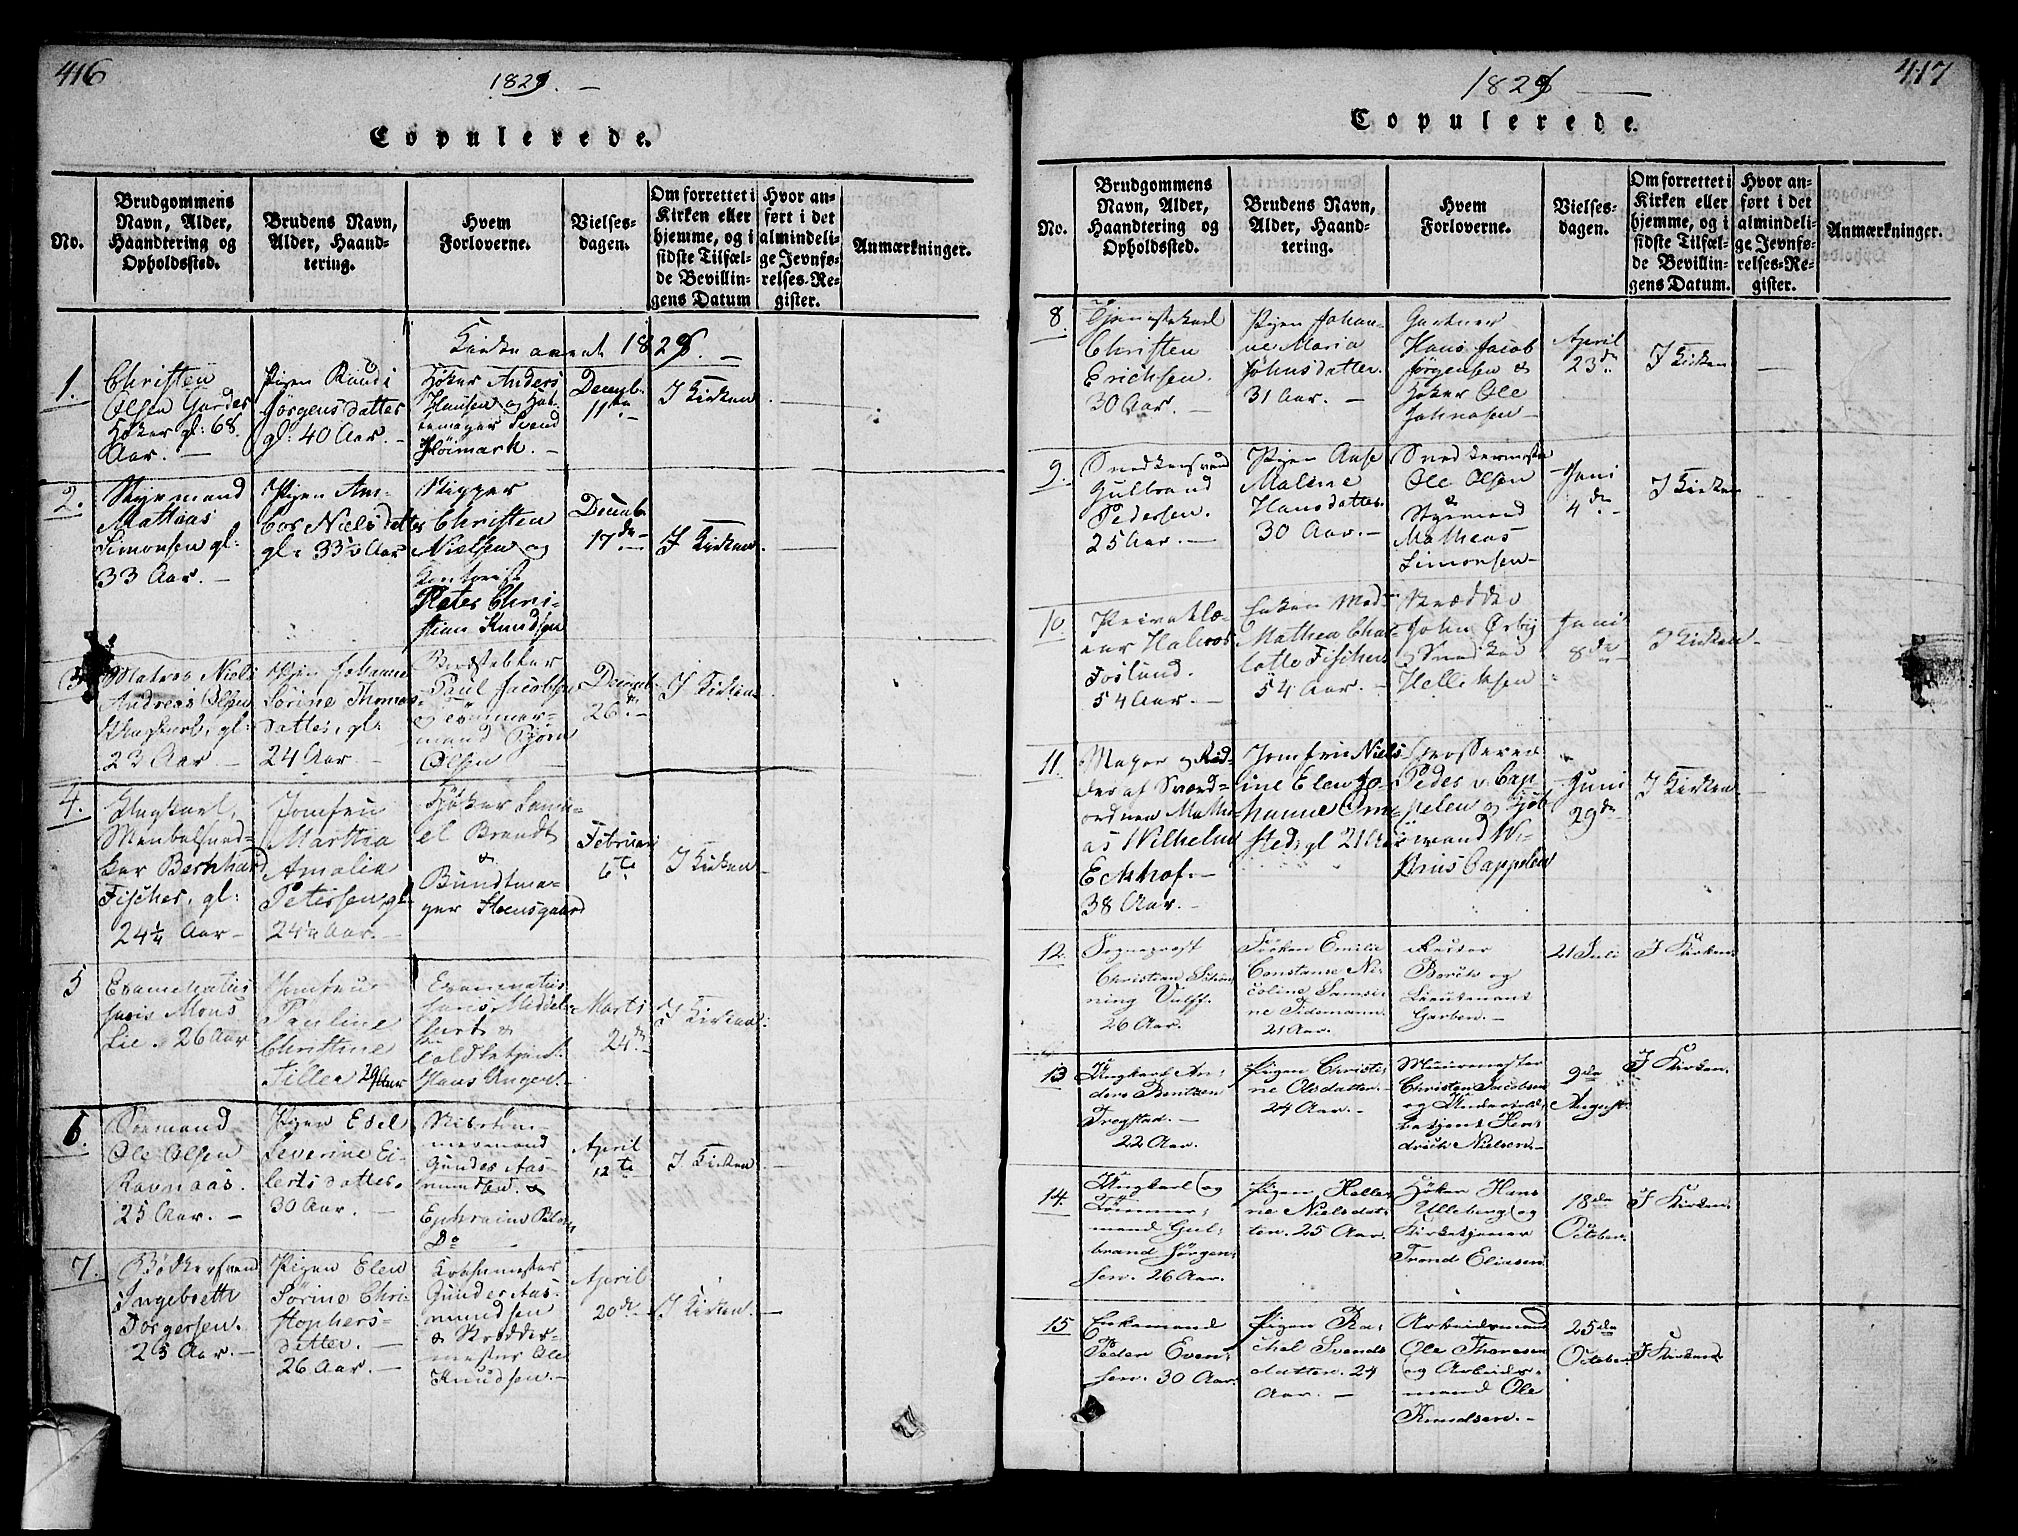 416
1829. —
Copulerede.
No.
Brudgommens
Navn, Alder,
Haandtering og
Opholdssted.
Brudens Navn,
Alder, Haand-
tering.
Hvem
Forloverne.
Vielses-
dagen.
Om forrettet i
Kirken eller
hjemme, og i
sidste Tilfæl-
de Bevillin-
gens Datum
Hvor an-
ført i det
almindeli-
ge Jevnfø-
relses-Re-
gister.
Anmærkninger.
Kirkeaaret 1828. —
1.
Christen
Olsen Garder
Høker gl: 68
Aar. —
Pigen Randi
Jörgensdatter
gl: 40 Aar. —
Høker Anders
Hansen og Hat-
temager Svend
Høimark. —
Decemb.
11te
I Kirken
2.
Styrmand
Mathias
Simonsen gl:
33 Aar. —
Pigen Am-
bor Nielsdatter
gl: 33½ Aar
Skipper
Christen
Nielsen og
Peter Chri-
stian Knudsen
Decemb.
17de
I Kirken.
3
Matros Niels
Andreas Olsen
gl:
23 Aar —
Pigen Johanne
Sörine Thomas-
datter, gl:
24 Aar
Paul Jacobsen
og Tömmer-
mand Björn
Olsen
Decemb.
26de
I Kirken
4.
Ungkarl,
Meubelsned-
ker Bernhard
Fischer, gl:
24¼ Aar —
Jomfru
Marthia
Amalia
Petersen, gl
24¼ Aar. —
Høker Samu-
el Brandt
&
Bundtma-
ger Steensgaard
Februar
6te
I Kirken
5
Examinatus
juris Mons
Lie. 26 Aar
Jomfru
Pauline
Christine
Tillea 29 Aar
Examinatus
juris Middel-
hart &
Hans Unger. —
Marts
24de
I Kirken.
6.
Sömand
Ole Olsen
Ravnaas.
25 Aar. —
Pigen Edel
Severine Ei-
lertsdatter.
30 Aar. —
Gunder Aas-
mundsen &
Ephraim
Do
April
12te
I Kirken
7.
Bödkersvend
Ingebreth
Torgersen.
25 Aar. —
Pigen Elen
Sörine Chri-
stophers-
datter. —
26 Aar. —
Gunder Aas-
mundsen
& Skrædder-
mester Ole
Knudsen. —
April
20de
I Kirken. —
417
1828 —
Copulerede.
No.
Brudgommens
Navn, Alder,
Haandtering og
Opholdssted.
Brudens Navn,
Alder, Haand-
tering.
Hvem
Forloverne.
Vielses-
dagen.
Om forrettet i
Kirken eller
hjemme, og i
sidste Tilfæl-
de Bevillin-
gens Datum.
Hvor an-
ført i det
almindeli-
ge Jevnfø-
relses-Re-
gister.
Anmærkninger.
8.
Tjenestekarl
Christen
Erichsen.
30 Aar. —
Pigen Johan-
ne Maria
Johnsdatter.
31 Aar. —
Gartner
Hans Jacob
Jørgensen &
Høker Ole
Johnasen —
April
23de
I Kirken
—
9.
Snedkersvend
Gulbrand
Pedersen.
25 Aar. —
Pigen Anse
Maline
Hansdatter.
30 Aar. —
Snedkermester
Ole Olsen
&
Styrmand
Mathias
Simonsen —
Juni
4de
I Kirken
10.
Privatlæ-
rer Halvor
Fosland.
54 Aar. —
Enken Mad:
Mathea Char-
lotte Fischer
54 Aar. —
Skrædder
John Örby
& Snedker
Hellichsen
Juni
8de
I Kirken
11.
Major og Rid-
der af Sværd-
ordnen Mathi-
as Wilhelm
Eckhof. —
38 Aar. —
Jomfru Niels-
ine Elen Jo-
hanne Om-
sted, gl 21 Aar
Grosserer
Peder v. Cap-
pelen og Kjöb-
mand
Cappelen
Juni
29de
I Kirken
12.
Sogneprest
Christian Schön-
ning Vulff.
26 Aar.
Fröken Emilie
Constanse Ni-
coline Samsi-
ne Tidemann.
21 Aar.
Rector
Borch og
Lieutenant
Garben. —
21 Juli
I Kirken
13
Ungkarl An-
ders Bentsen
Trogstad. —
22 Aar.
Pigen Christi-
ne Olsdatter. —
24 Aar. —
Muurmester
Christen Jacobsen
og Undertold-
betjent Hen-
drick Nielsen. —
9de
August
I Kirken.
14.
Ungkarl og
Tömmer-
mand Gul-
brand Jörgen-
sen. 26 Aar.
Pigen Helle-
ne Nielsdat-
ter. 25 Aar.
Höker Hans
Ulleberg og
Kirketjener
Trond Eliasen
18de
October.
I Kirken.
15
Enkemand
Peder Even-
sen. 30 Aar.
Pigen Ra-
chel Svends
datter. 24
Aar. —
Arbeidsmand
Ole Thoresen
og Arbeids-
mand Ole
Knudsen. —
25de
October
I Kirken